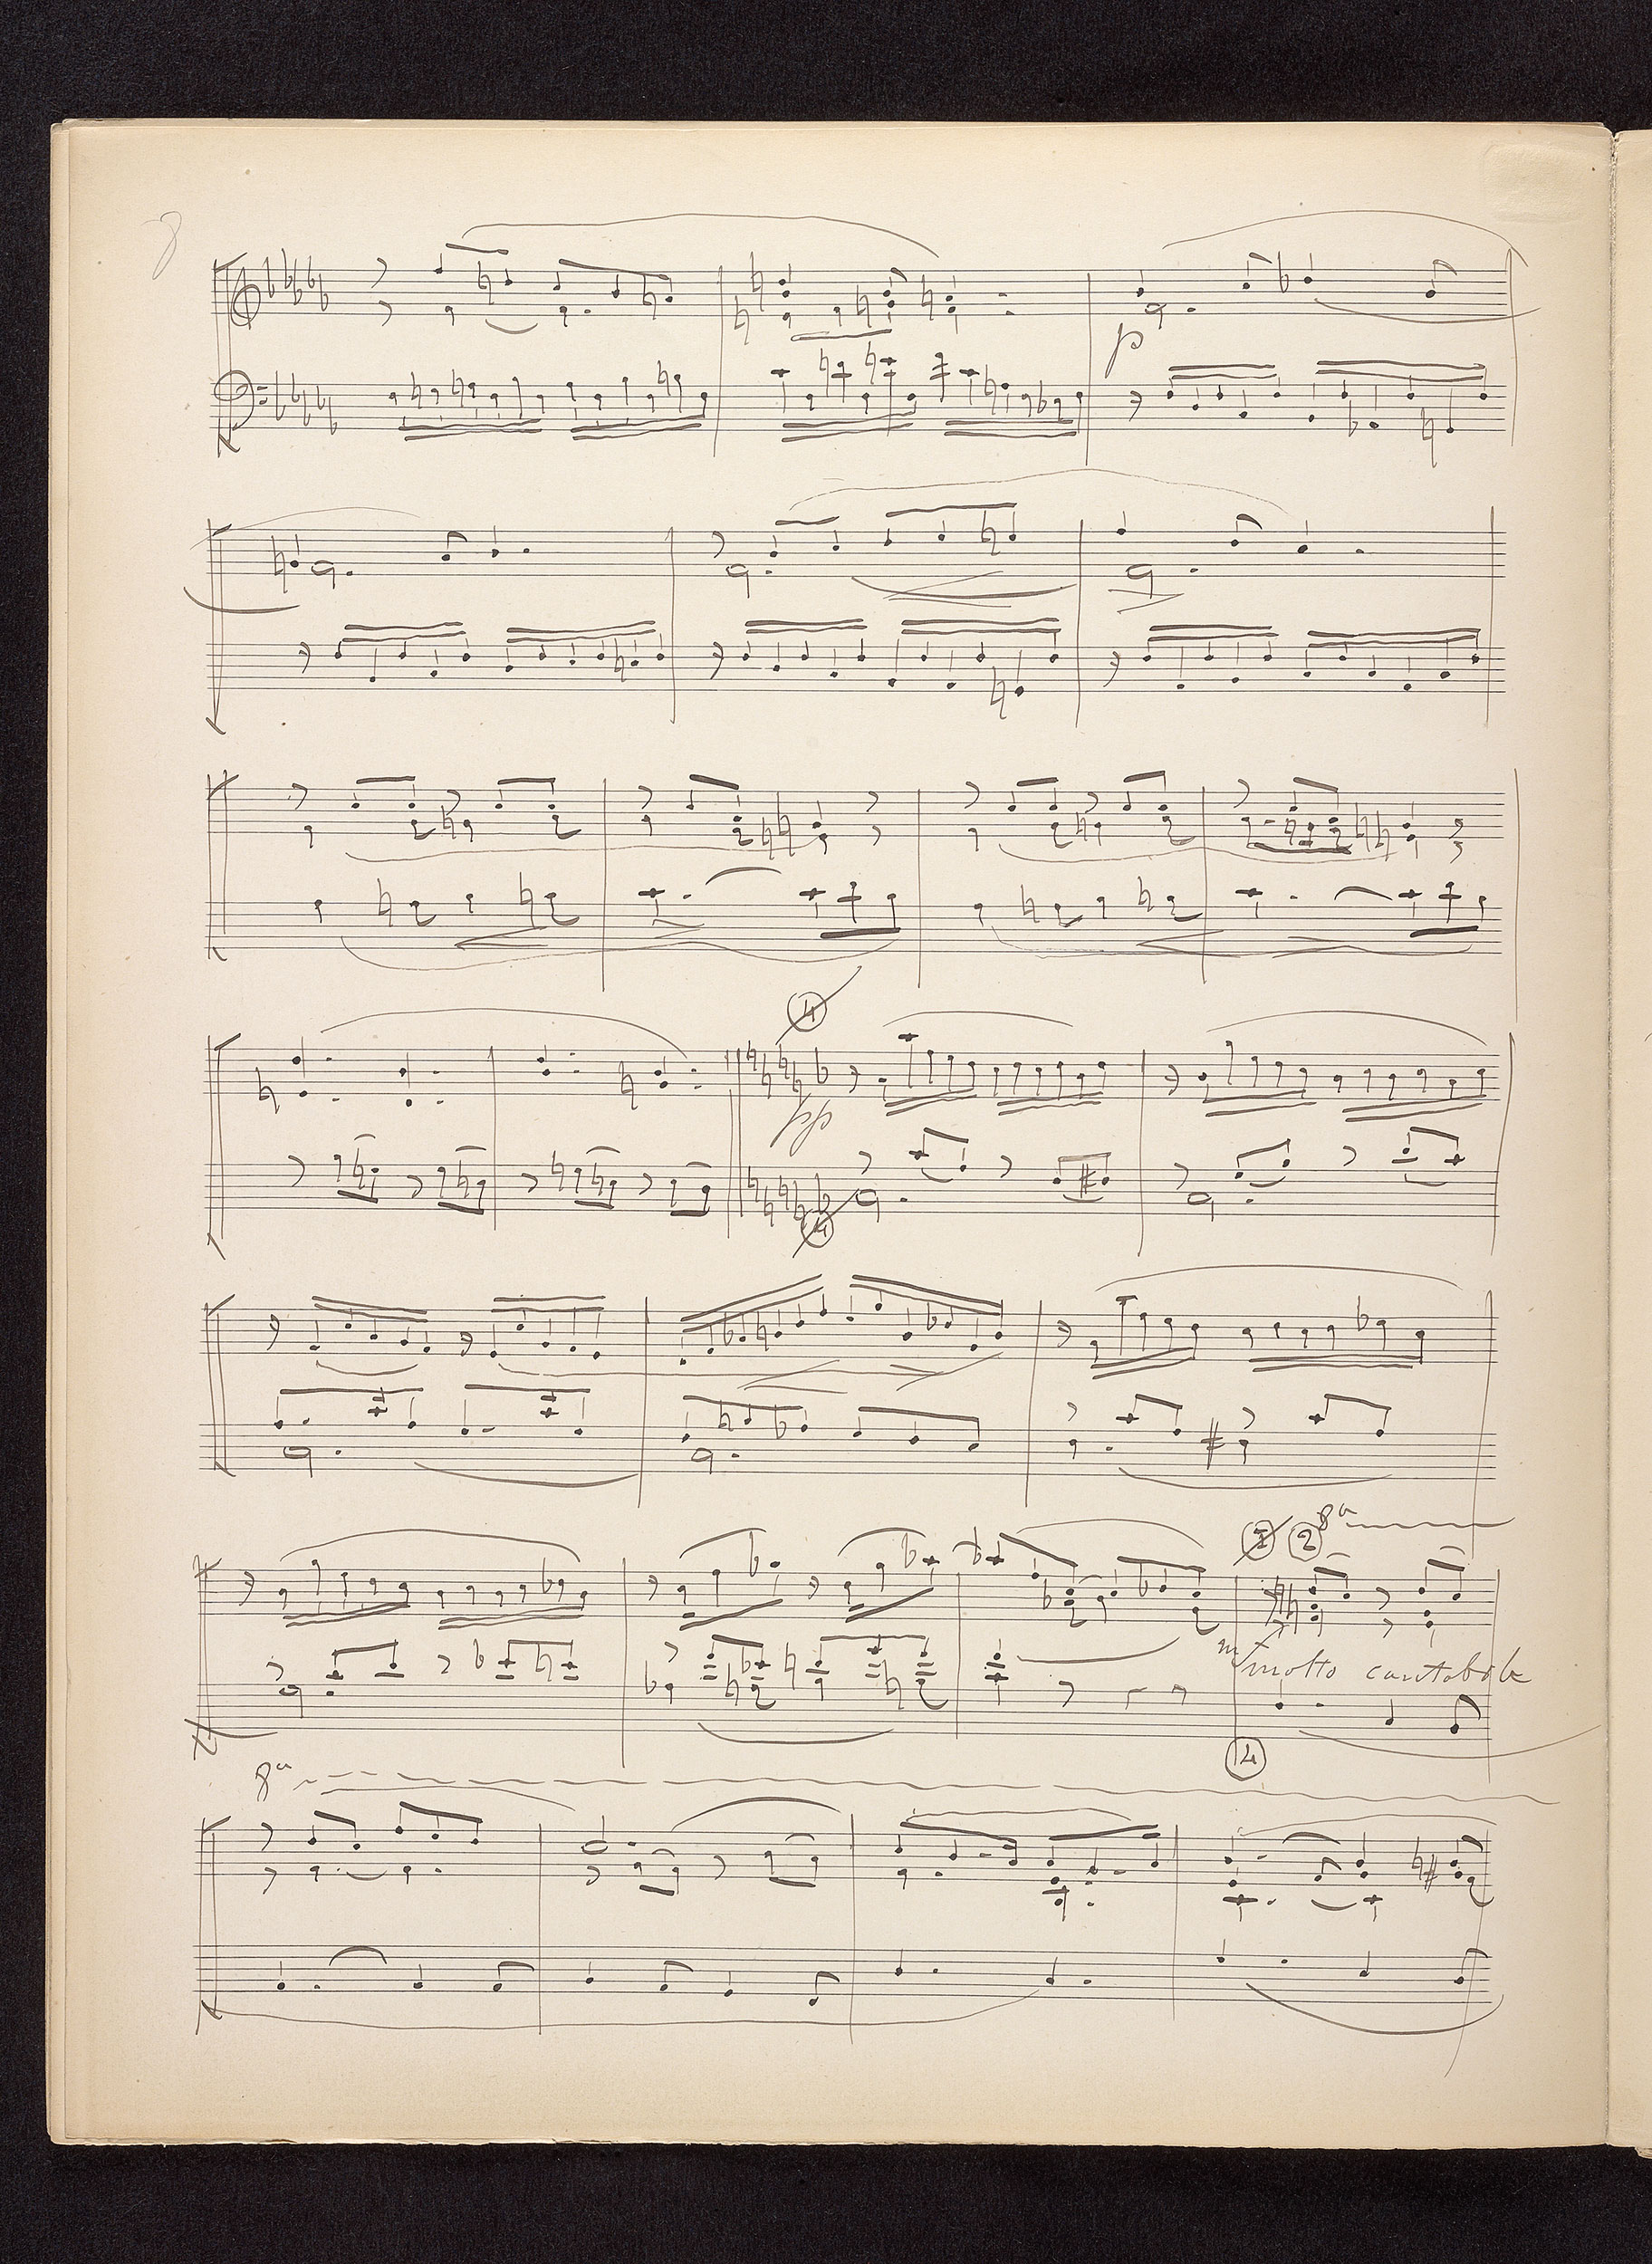 8
p
4
pp
4
1 2 8a
mf molto cantabile
4
8a